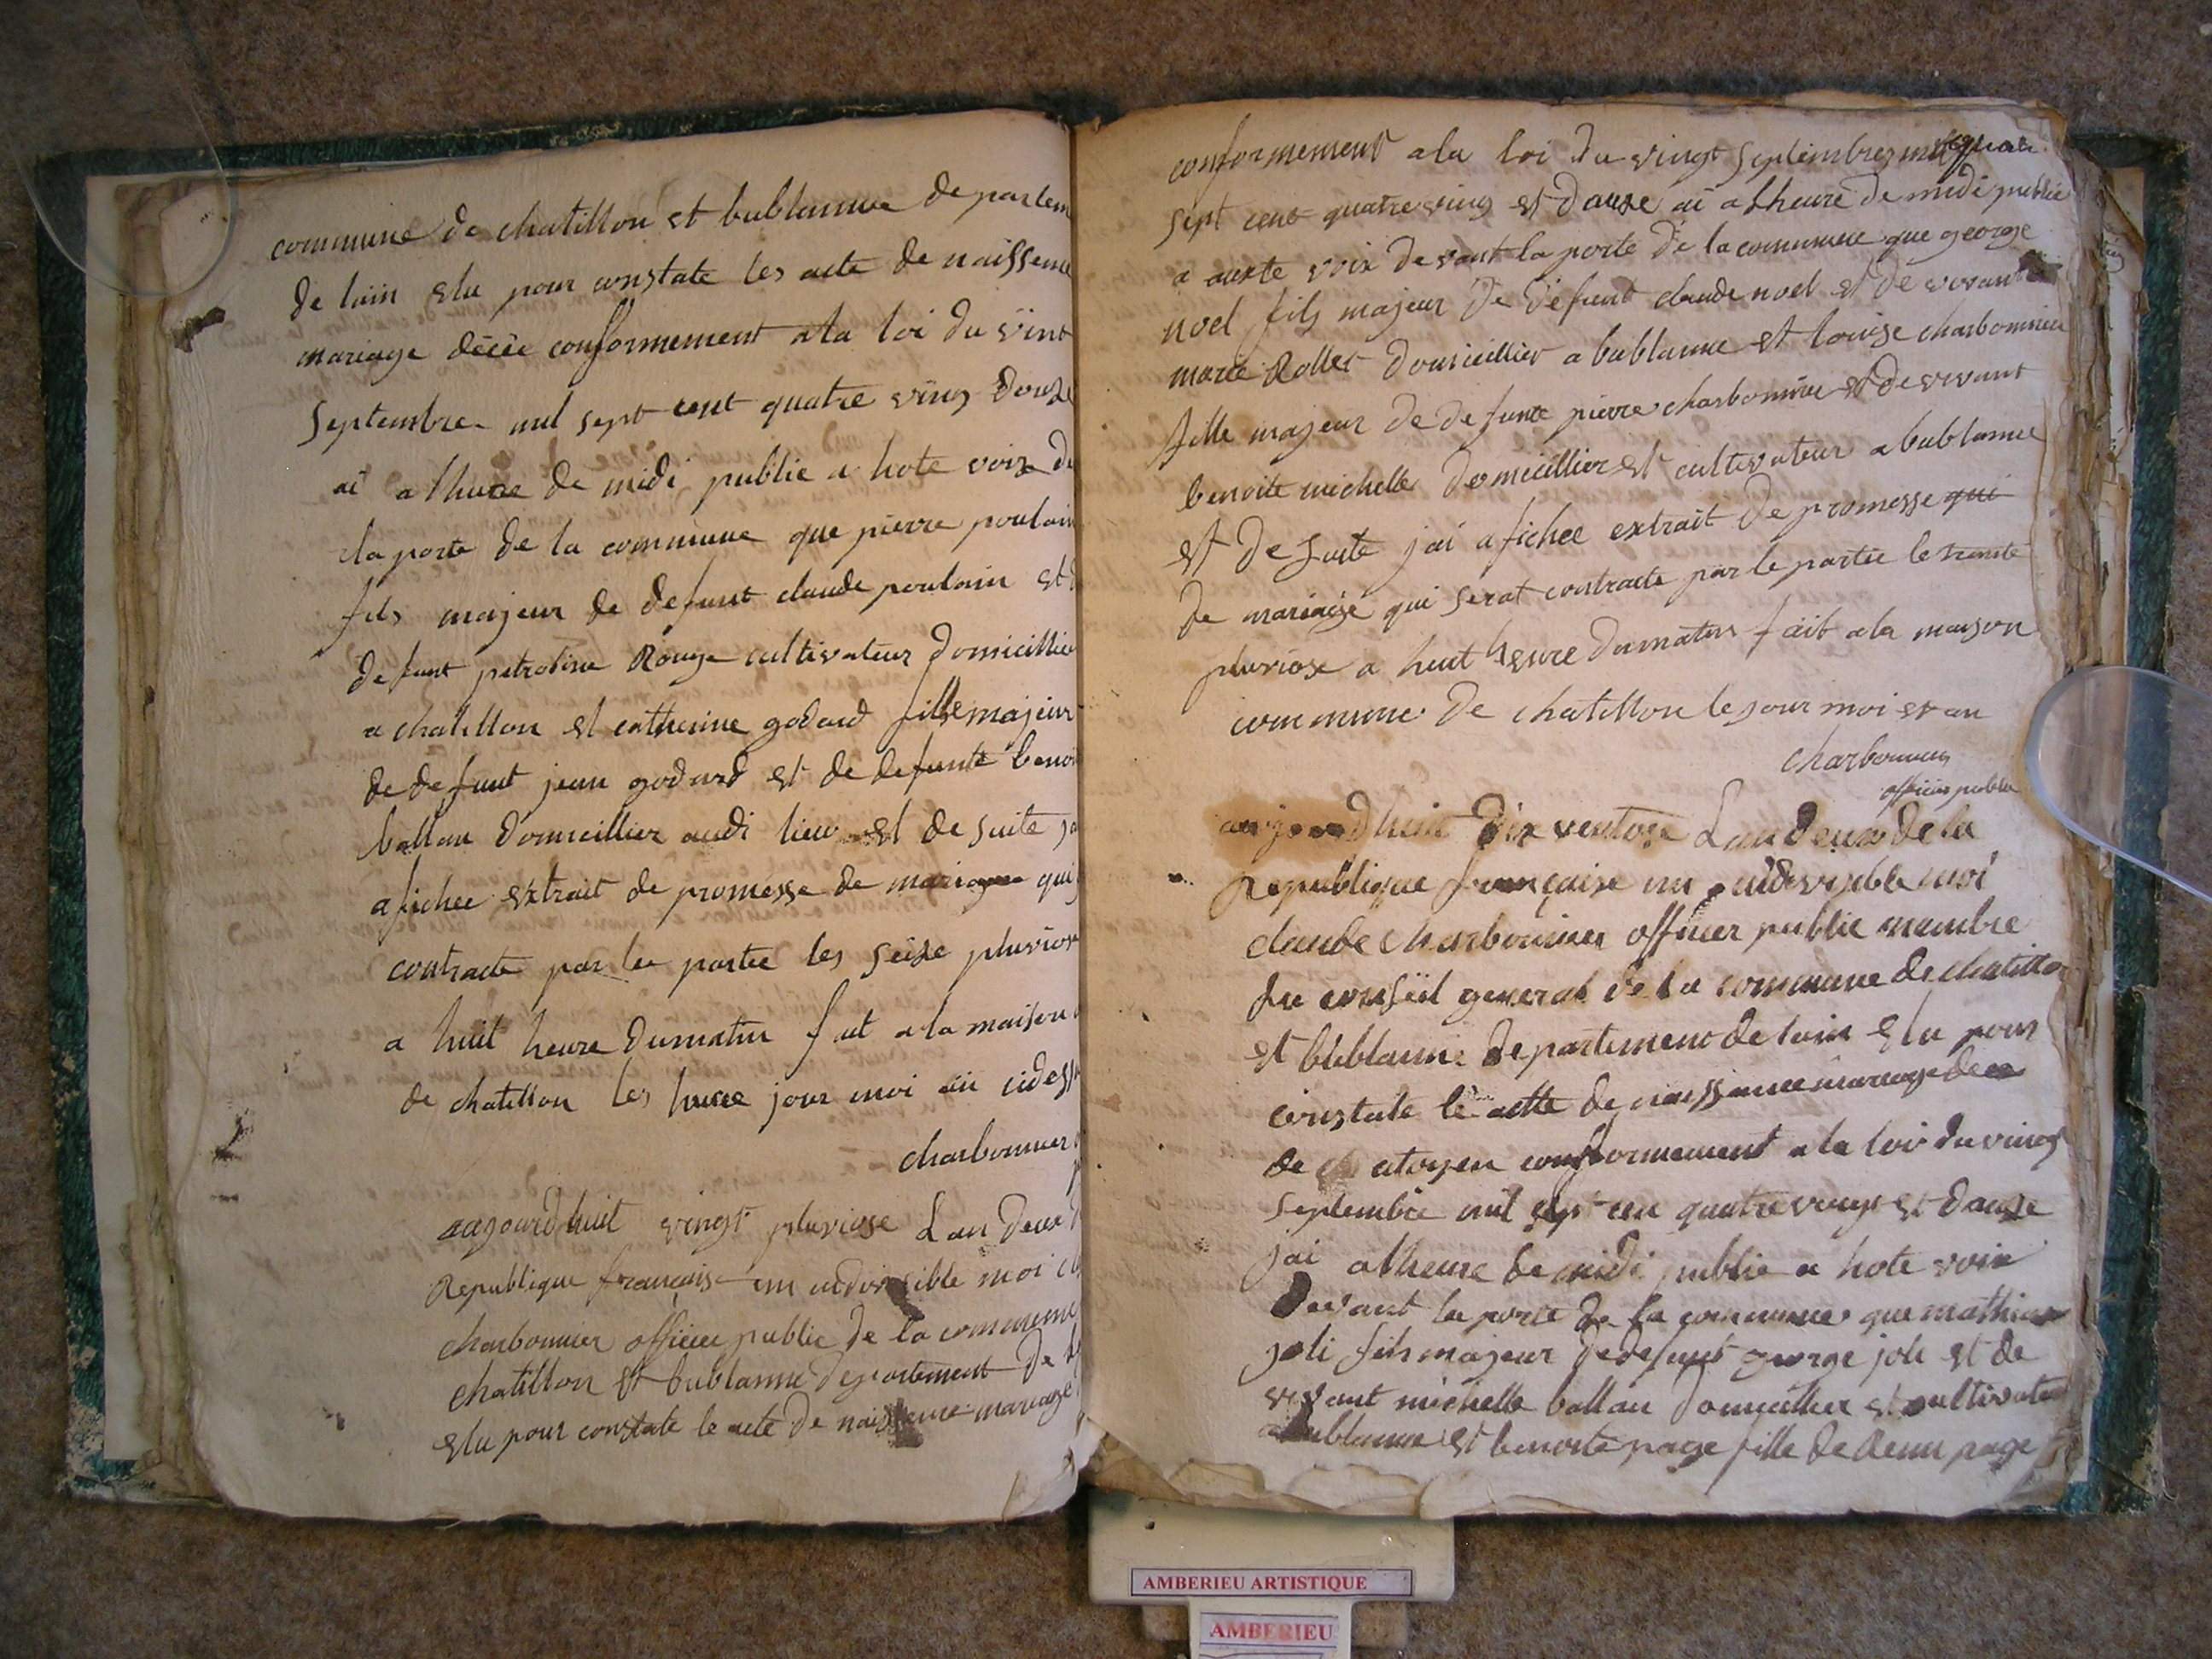 commune de chatillon et bublanne departem
de lain elu pour constate les acte de naissence
mariage décée conformement ala loi du vint
septembre mil sept cent quatre vings douze
ai a lheure de midi publie a hote voix de
la porte de la commune que pierre poulain
fils majeur de defunt claude poulain et d
defunt petroline Rouge cultivateur domicillier
a chatillon et catherine godard fille majeur
de defunt jean godard et de defunte benoi
ballan domicillier audi lieu et de suite ja
afichee extrait de promesse de mariage qui
contracte par les partee les seize pluviose
a huit heure dumatin fait a la maison
de chatillon les heure jour moi an cidess
charbonnier
aujourdhuit vingt pluviose Lan deux
Republique française un indivisible moi cl
charbonnier officier public de la commune
chatillon et bublanne departement de l
elu pour constate le acte de naissence mariage
conformement ala loi du vingt septembre mil
sept cent quatre vings et douze ai a lheure de midi publié
a aute voix devant la porte de la commune que george
noel fils majeur de defunt claude noel et de vivante
marie Rollet domicillier a bublanne et louise charbonnier
fille majeur de defunt pierre charbonnier et de vivant
benoite michelle domicillier et cultivateur a bublanne
et de suite jai afichee extrait de promesse qui
de mariage qui serat contracte par le partee le trente
pluviose a huit heure dumatin fait ala maison
commune de chatillon le jour moi et an
charbonnier
officier public
aujourdhuit Dix ventose Lan deux de la
Republique française un indivisible moi
claude charbonnier officier public membre
du conseil general de la commune de chatillon
et bublanne departement de lain elu pour
constate le actte de naissance mariage decee
de citoyen conformement a la loi du vingt
septembre mil sept cen quatre vings et douze
jai a lheure de midi publie a hote voix
devant la porte de la commune que mathieu
joli fils majeur de defunt george joli et de
vivant michelle ballan domicillier et cultivateur
a bublanne et benoite page fille de page
AMBERIEU ARTISTIQUE
AMBERIEU